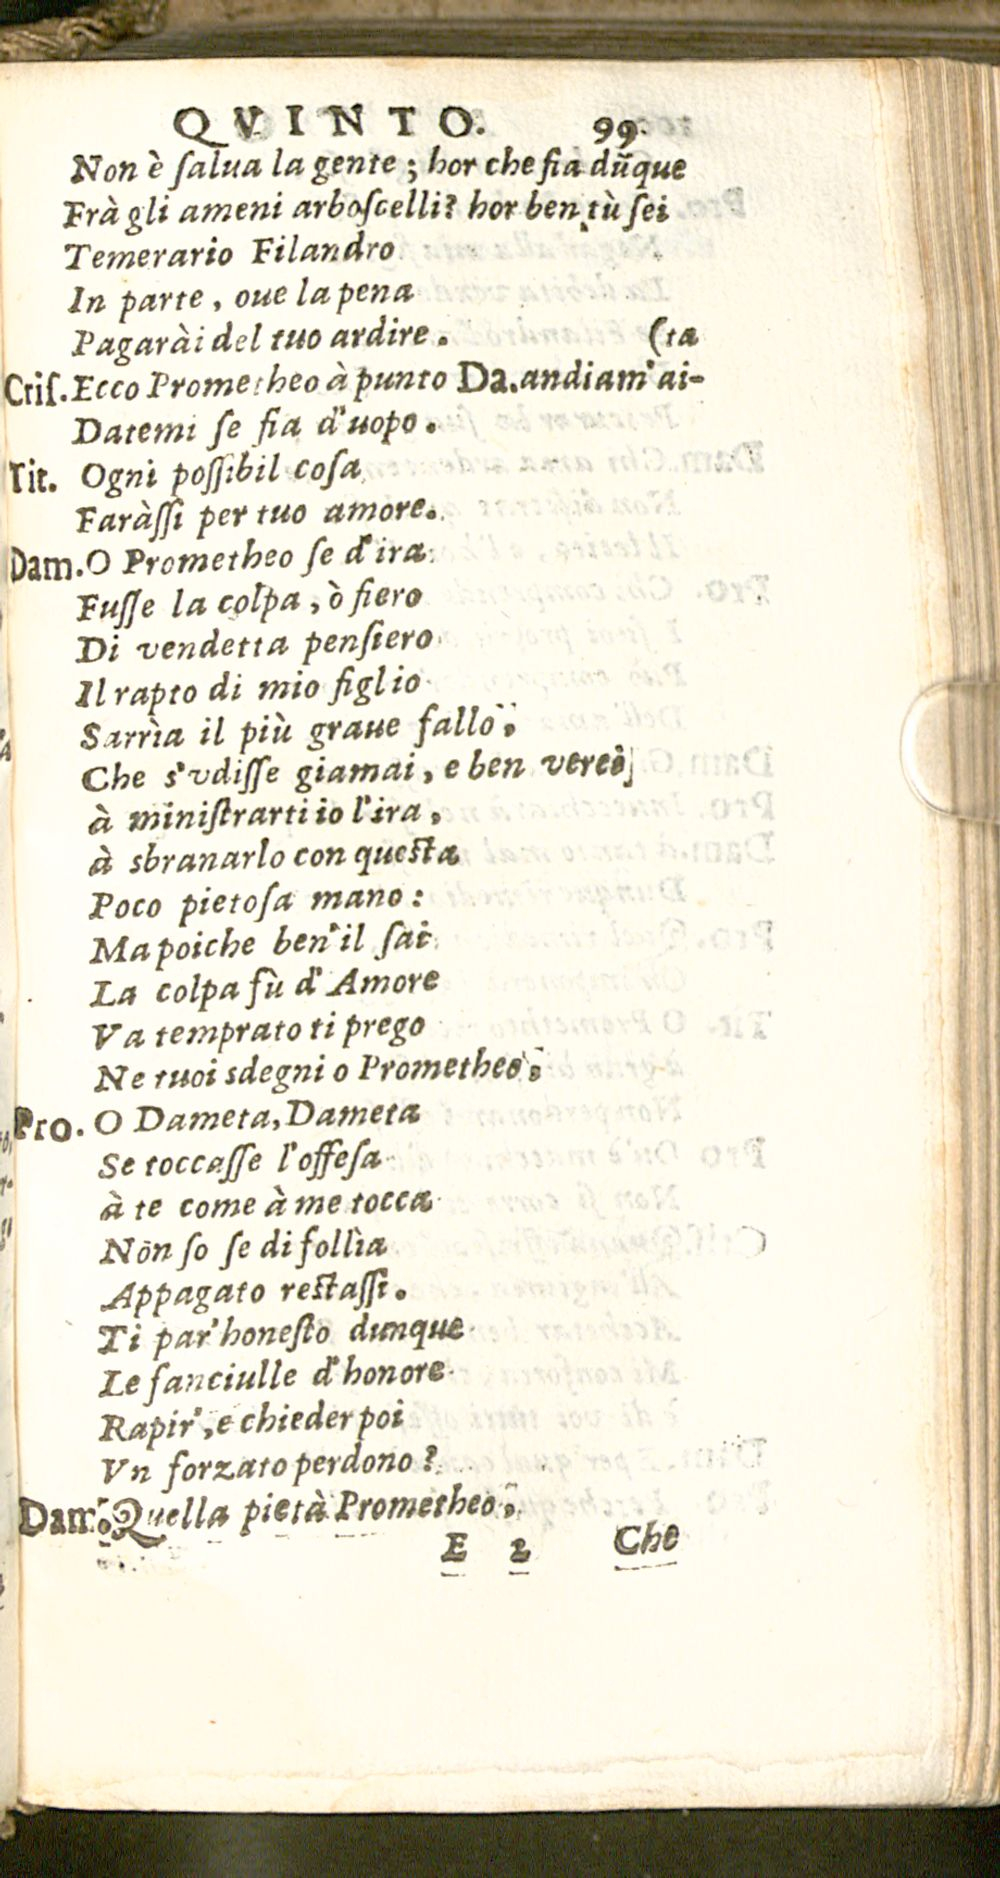 QVINTO. 99.
Non è ſalua la gente; hor che fia dũque
Frà gli ameni arboſcelli? hor ben tù ſei
Temerario Filandro
In parte, oue la pena
Pagarài del tuo ardire. (ta
Criſ. Ecco Prometheo à punto Da. andiam' ai-
Datemi ſe fia d'uopo.
Tit. Ogni poſſibil coſa
Faràſſi per tuo amore.
Dam. O Prometheo ſe d'ira
Fuſſe la colpa, ò fiero
Di vendetta penſiero
Il rapto di mio figlio
Sarrìa il più graue fallo;
Che s'vdiſſe giamai, e ben verei
à miniſtrarti io l'ira,
à sbranarlo con queſta
Poco pietoſa mano:
Ma poiche ben' il ſai
La colpa fù d'Amore
Va temprato ti prego
Ne tuoi sdegni o Prometheo;
Pro. O Dameta, Dameta
Se toccaſſe l'offeſa
à te come à me tocca
Nõn ſo ſe di follìa
Appagato reſtaſſi.
Ti par' honeſto dunque
Le fanciulle d'honore
Rapir', e chieder poi
Vn forzato perdono?
Dam. Quella pietà Prometheo;
E 2 Che